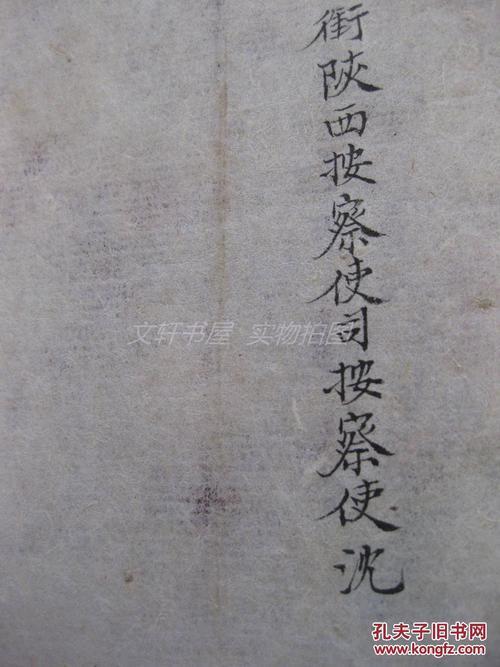 銜陝西按察使司按察使沈
文轩书屋 实物拍图
孔夫子旧书网
www.kongfz.com